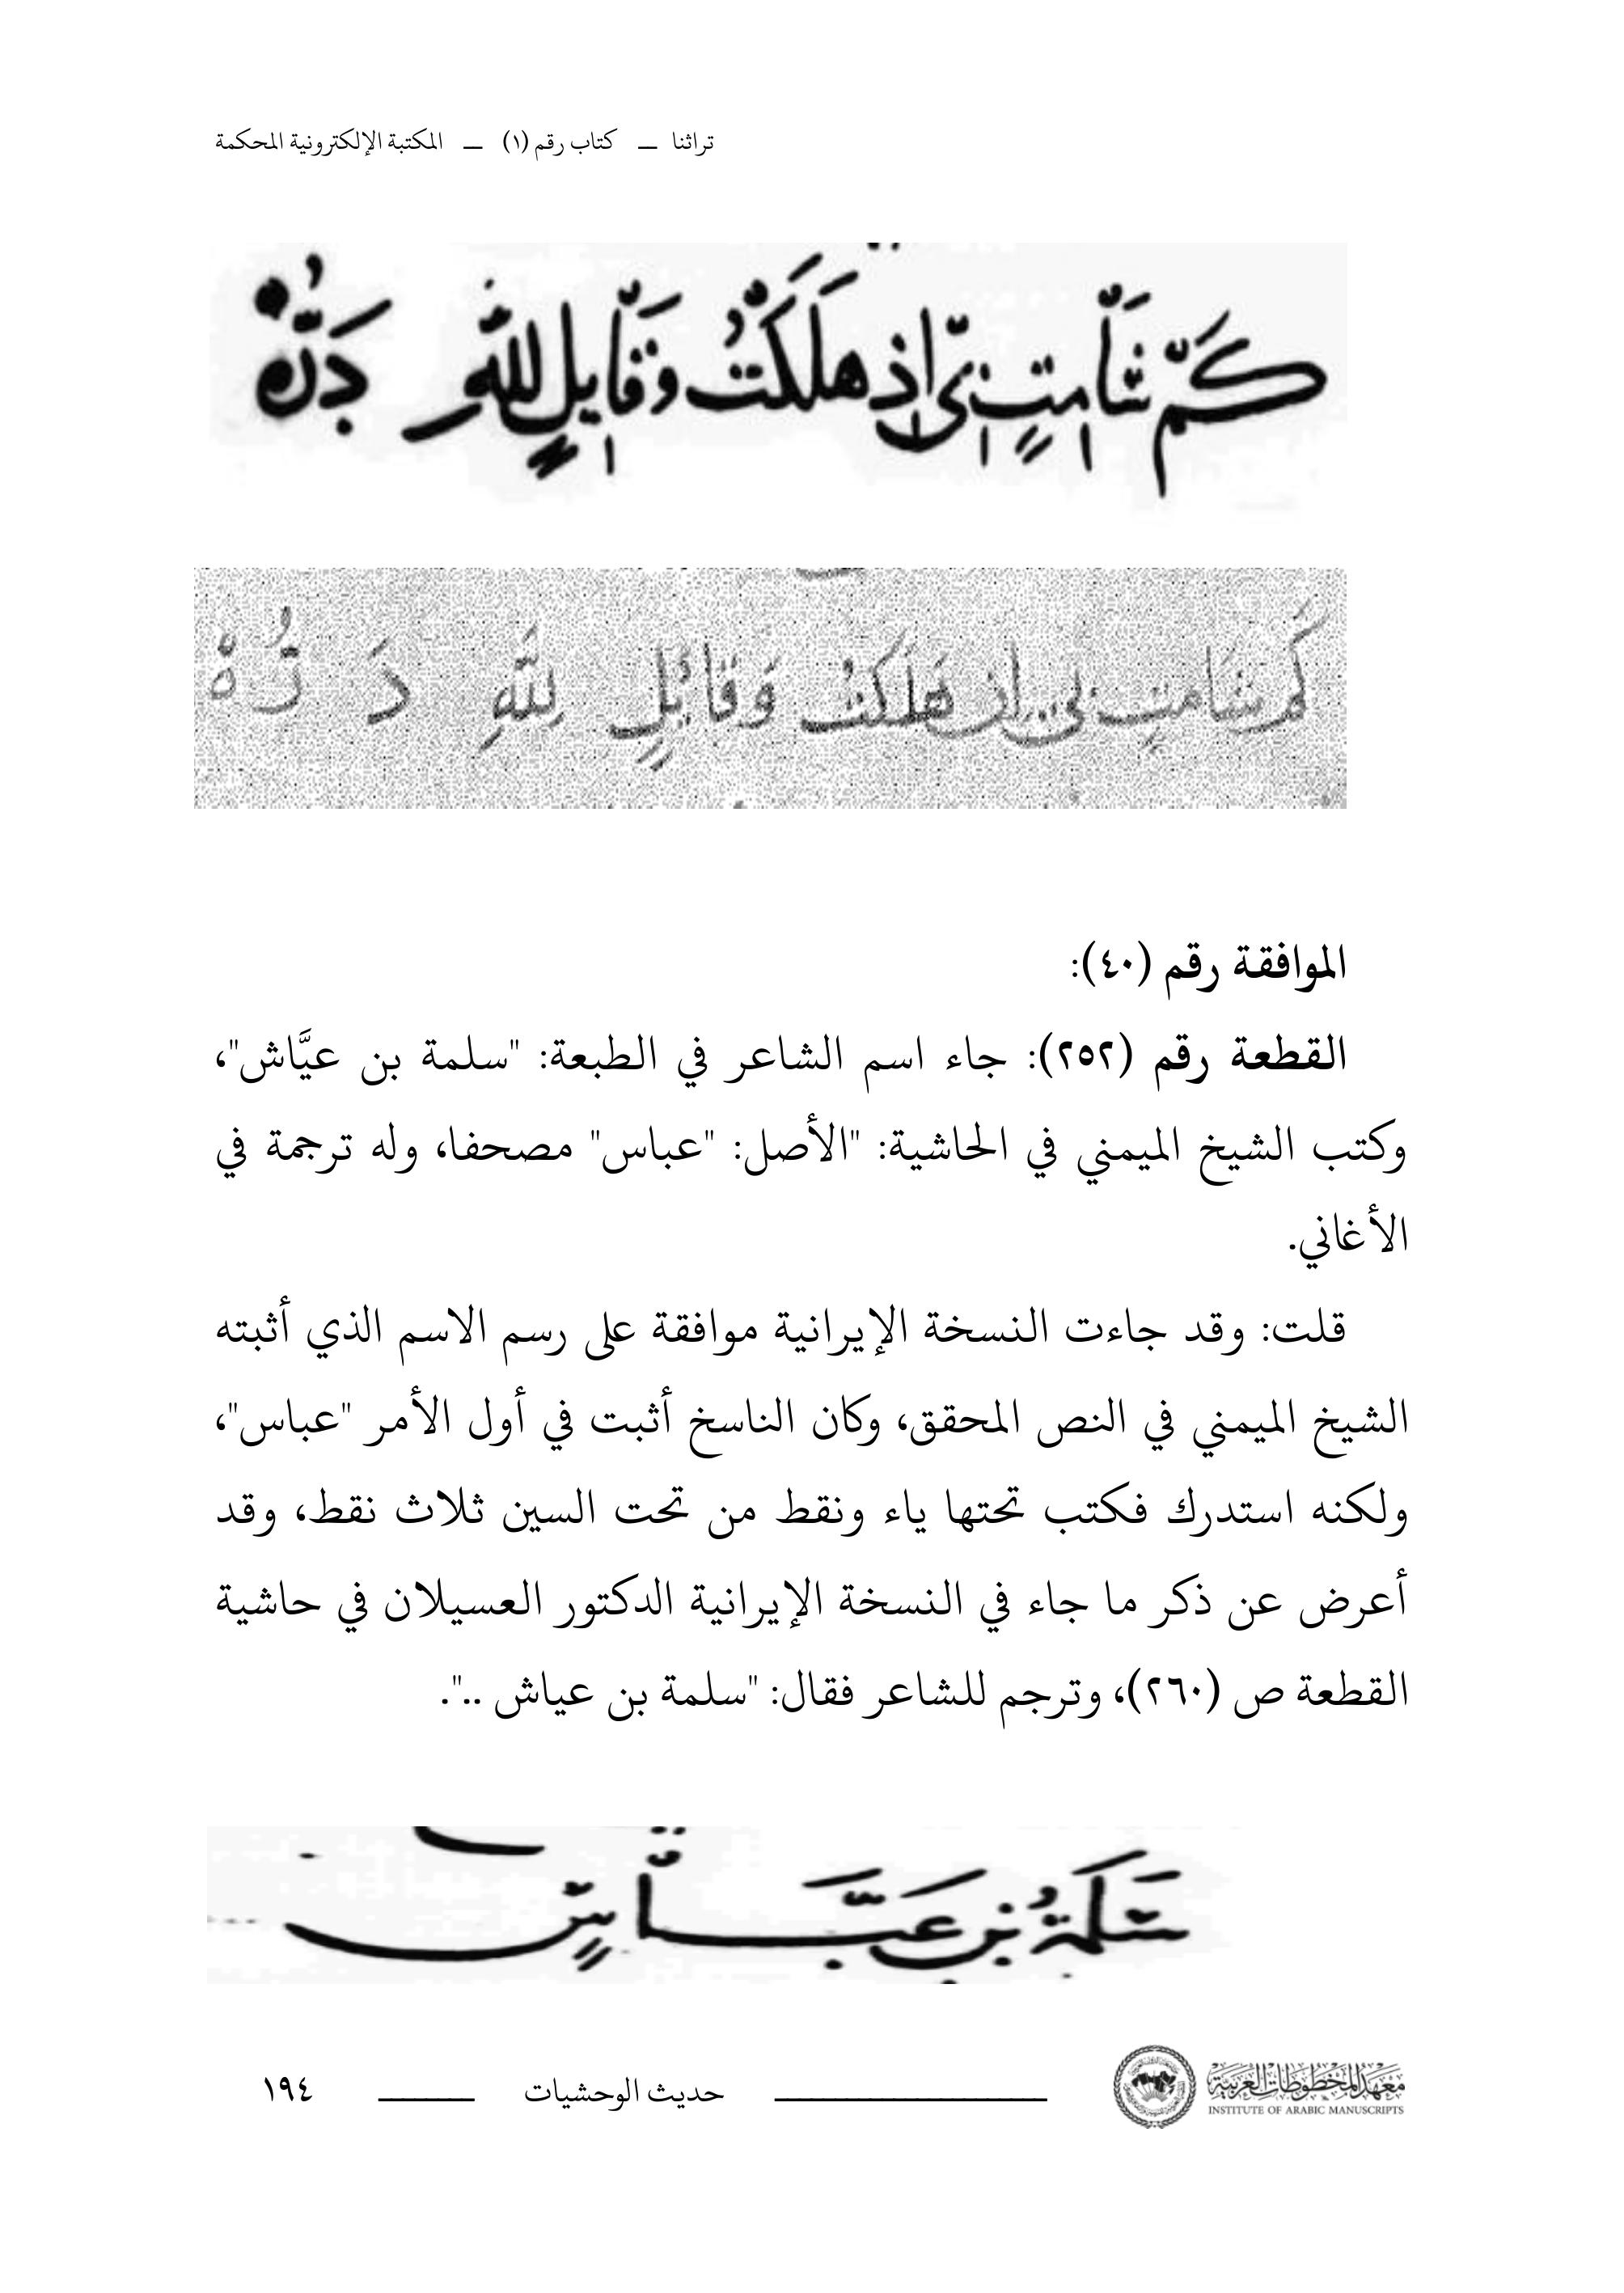 تراثنا — كتاب رقم (١) — المكتبة الإلكترونية المحكمة
كم شامت بي اذ هلكت وقايل لله دره
كم شامت بي إن هلكت وقائل لله د ره
الموافقة رقم (٤٠):
القطعة رقم (٢٥٢): جاء اسم الشاعر في الطبعة: "سلمة بن عيَّاش"،
وكتب الشيخ الميمني في الحاشية: "الأصل: "عباس" مصحفا، وله ترجمة في
الأغاني.
قلت: وقد جاءت النسخة الإيرانية موافقة على رسم الاسم الذي أثبته
الشيخ الميمني في النص المحقق، وكان الناسخ أثبت في أول الأمر "عباس"،
ولكنه استدرك فكتب تحتها ياء ونقط من تحت السين ثلاث نقط، وقد
أعرض عن ذكر ما جاء في النسخة الإيرانية الدكتور العسيلان في حاشية
القطعة ص (٢٦٠)، وترجم للشاعر فقال: "سلمة بن عياش ..".
سلمة بن عبَّاس
معهد المخطوطات العربية
INSTITUTE OF ARABIC MANUSCRIPTS
حديث الوحشيات
١٩٤